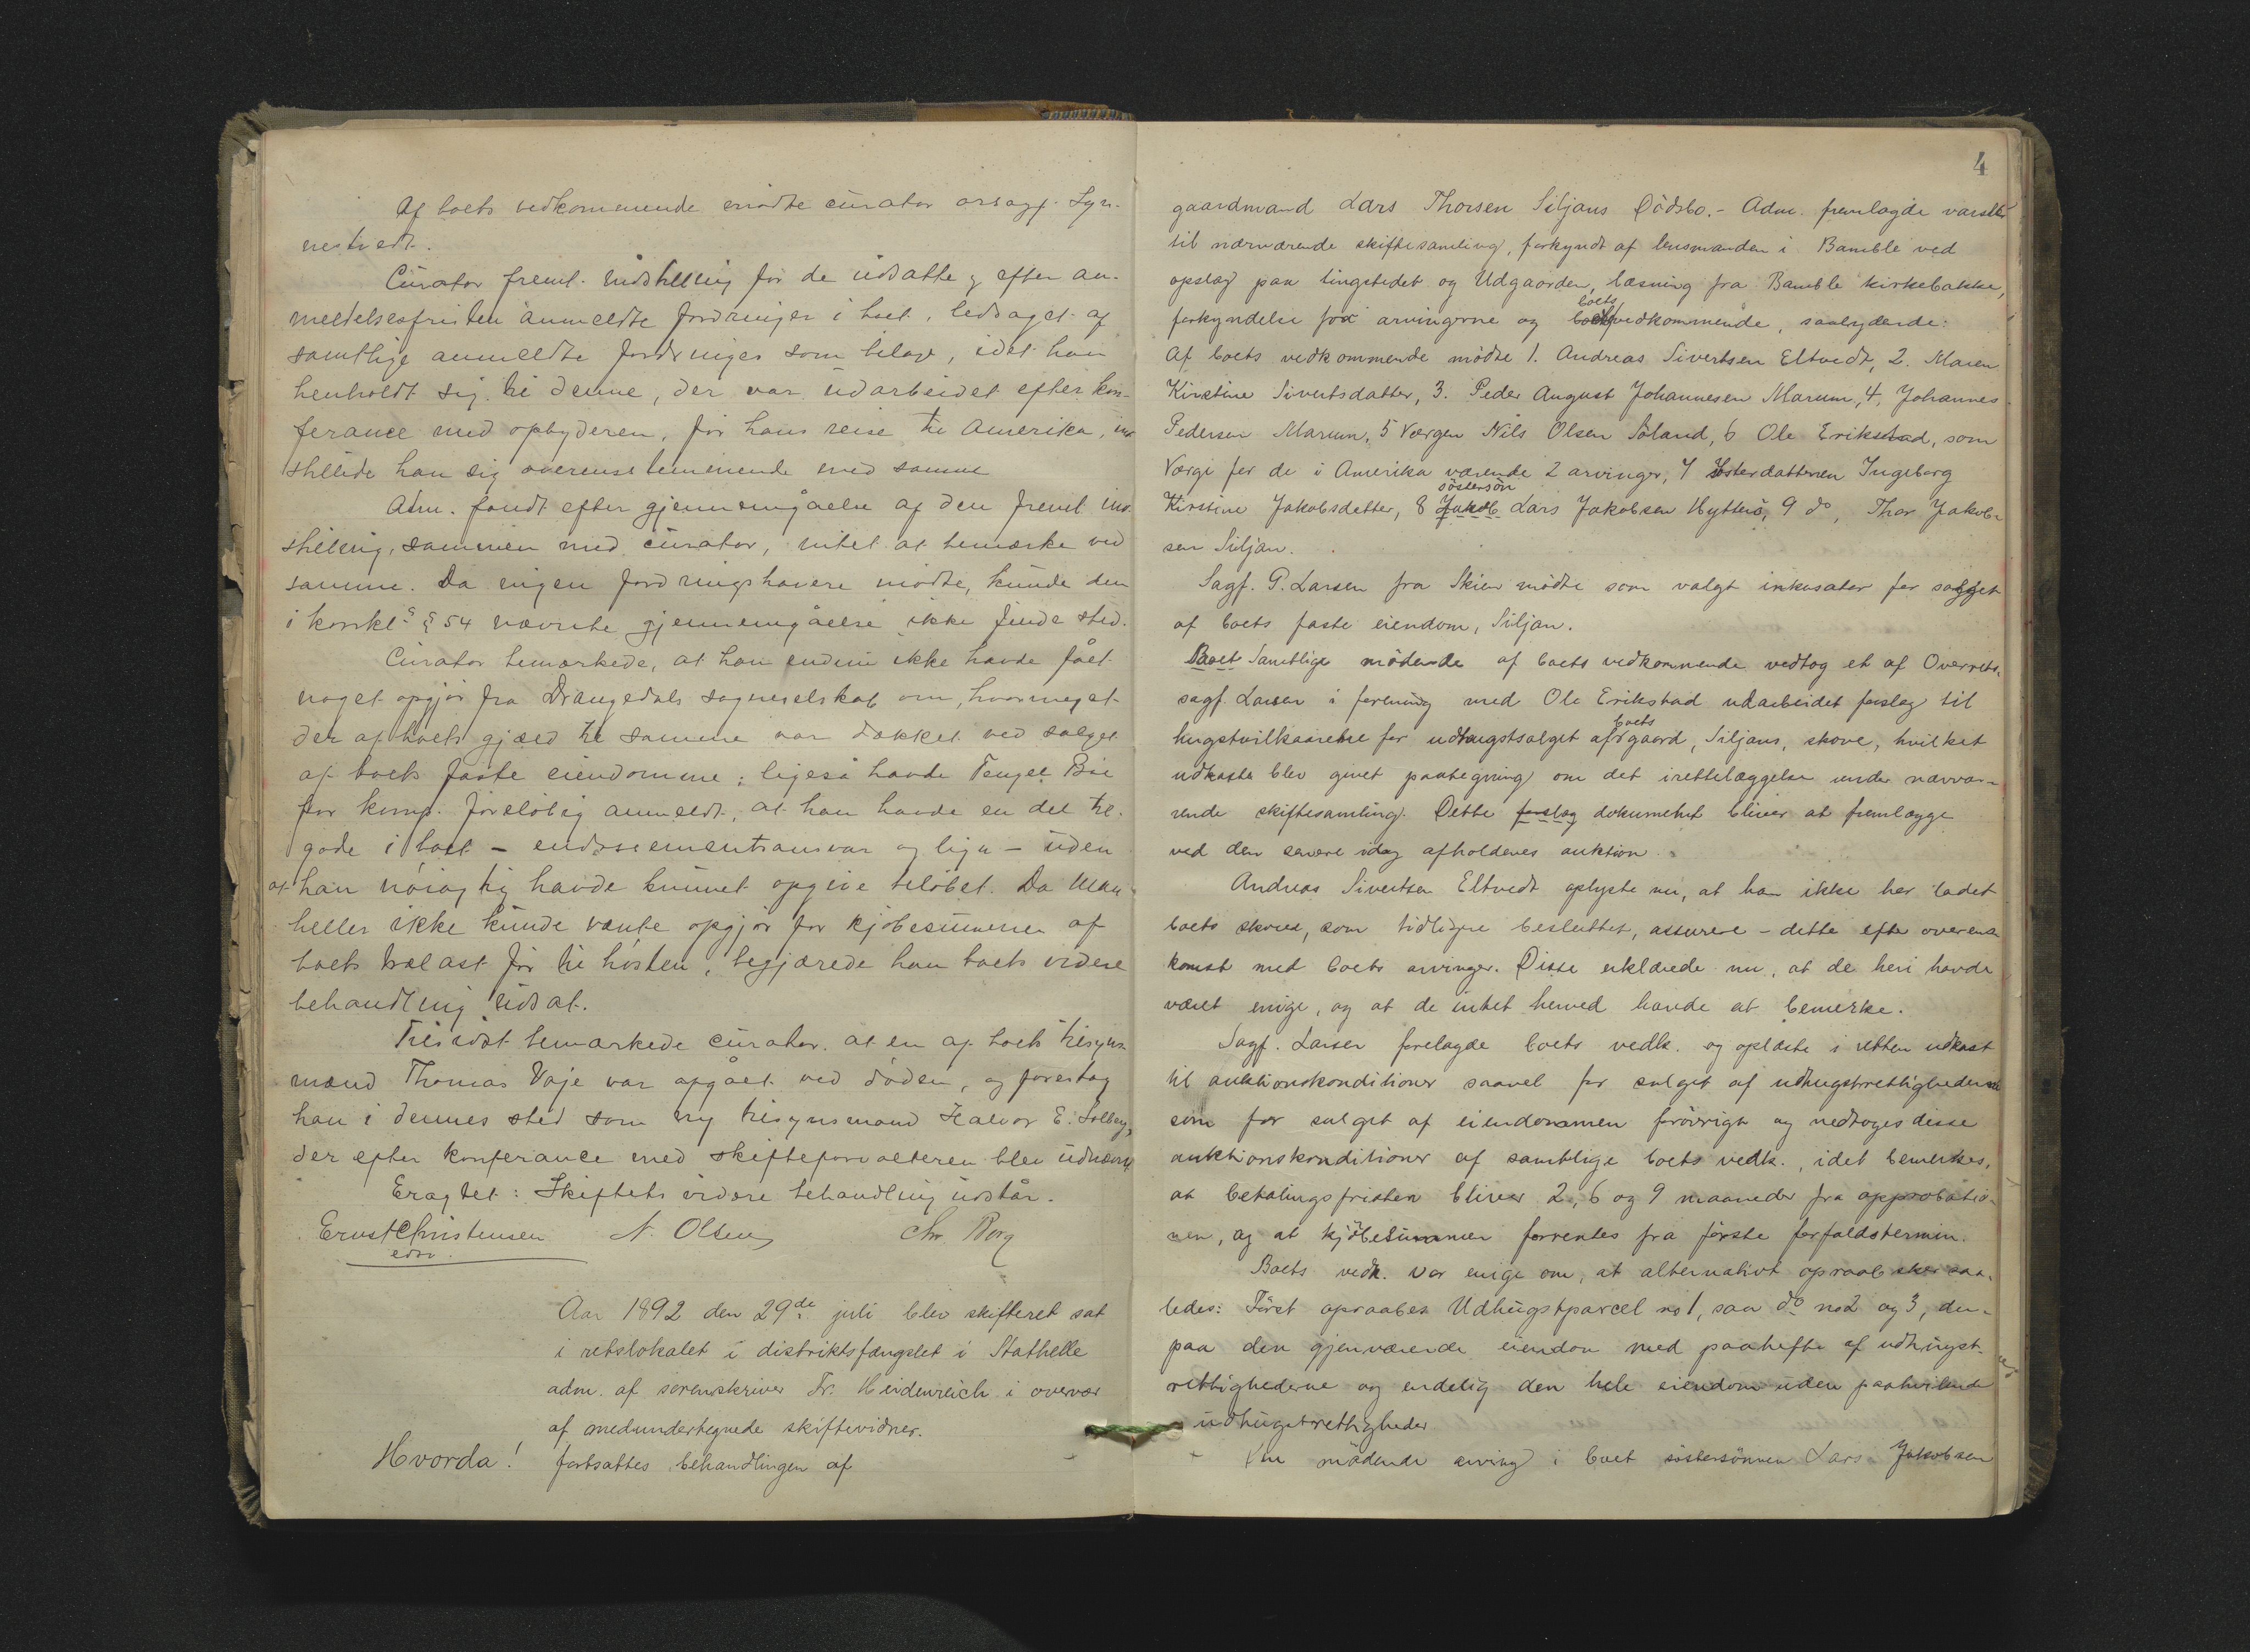 Af boets vedkommende mødte curator orsagf. Lyn-
nestvedt.
Curator freml. indstilling for de udsatte & efter an-
meldelsesfristen anmeldte fordringer i boet, ledsaget af
samtlige anmeldte fordringer som bilage, idet han
henholdt sig til denne, der var udarbeidet efter kon-
ferance med opbyderen, før hans reise til Amerika, ind
stillede han sig overensstemmende med samme
Adm. fandt efter gjennemgåelse af den freml. ind-
stilling, sammen med curator, intet at bemærke ved
samme. Da ingen fordringshavere mødte, kunde den
i konkl. § 54 nævnte gjennemgåelse ikke finde sted.
Curator bemærkede, at han endnu ikke havde fået
noget opgjør fra Drangedals sogneselskab om, hvormeget
der af boets gjæld til samme var dækket ved salget
af boets faste eiendomme; ligeså havde Tengel Bøe
for komp. foreløbig anmeldt, at han havde en del til-
gode i boet – endossementsansvar og lign – uden
at han nøiagtig havde kunnet opgive beløbet. Da man
heller ikke kunde vente opgjør for kjøbesummen af
boets trælast før til høsten, begjærede han boets videre
behandling udsat.
Tilsidst bemærkede curator, at en af boets tilsyns-
mænd Thomas Vaje var afgået ved døden, og foreslog
han i dennes sted som ny tilsynsmand Halvor E. Solberg,
der efter konferance med skifteforvalteren blev udnævnt
Eragtet: Skiftets videre behandling udstår.
Ernst Christensen N. Olsen Chr. Borg
edsv.
Aar 1892 den 29de juli blev skifteret sat
i retslokalet i distriktsfængslet i Stathelle
adm. af sorenskriver Fr. Heidenreich i overvær
af medundertegnede skiftevidner.
Hvorda! fortsattes behandlingen af
4
gaardmand Lars Thorsen Siljans Dödsbo. – Adm. fremlagde varsel
til nærværende skiftesamling, forkyndt af lensmanden i Bamble ved
opslag paa tingstedet og Udgaarden, læsning fra Bamble kirkebakke,
forkyndelse for arvingerne og boets vedkommende, saalydende:
Af boets vedkommende mödte 1. Andreas Sivertsen Eltvedt, 2. Maren
Kirstine Sivertsdatter, 3. Peder August Johannesen Marum, 4, Johannes
Pedersen Marum, 5 Værgen Nils Olsen Söland, 6 Ole Erikstad, som
Værge for de i Amerika værende 2 arvinger, 7 Søsterdatteren Ingeborg
Kirstine Jakobsdatter, 8 Jakob söstersön Lars Jakobsen Hytterö, 9 do, Thor Jakob-
sen Siljan.
Sagf. G. Larsen fra Skien mödte som valgt inkasator for salget
af boets faste eiendom, Siljan.
Boet Samtlige mödende af boets vedkommende vedtog et af Overrets-
sagf. Larsen i forening med Ole Erikstad udarbeidet forslag til
hugstvilkaarene for udhugstsalget af boets gaard, Siljans, skove, hvilket
udkast blev givet paategning om det irettelæggelse under nærvæ-
rende skiftesamling. Dette forslag dokumentet bliver at fremlægge
ved den senere idag afholdenes auktion.
Andreas Sivertsen Eltvedt oplyste nu, at han ikke har ladet
boets skove, som tidligere besluttet, assurere – dette efter overens
komst med boets arvinger. Disse erklærede nu, at de heri havde
været enige, og at de intet herved havde at bemerke.
Sagf. Larsen forelagde boets vedk. og oplæste i retten udkast
til auktionskonditioner saavel for salget af udhugstrettighederne
som for salget af eiendommen forövrigt og vedtoges disse
auktionskonditioner af samtlige boets vedk., idet bemerkes,
at betalingsfristen bliver 2, 6 og 9 maaneder fra approbatio-
nen, og at kjöbesummen forrentes fra förste forfaldstermin.
Boets vedk. var enige om, at alternativt opraab sker saa-
ledes: Först opraabes Udhugstparcel no 1, saa do no 2 og 3, der-
paa den gjenværende eiendom med paahefte af udhugst-
rettighederne og endelig den hele eiendom uden paahvilende
udhugstrettigheder
mödende arving i boet söstersönnen Lars Jakobsen